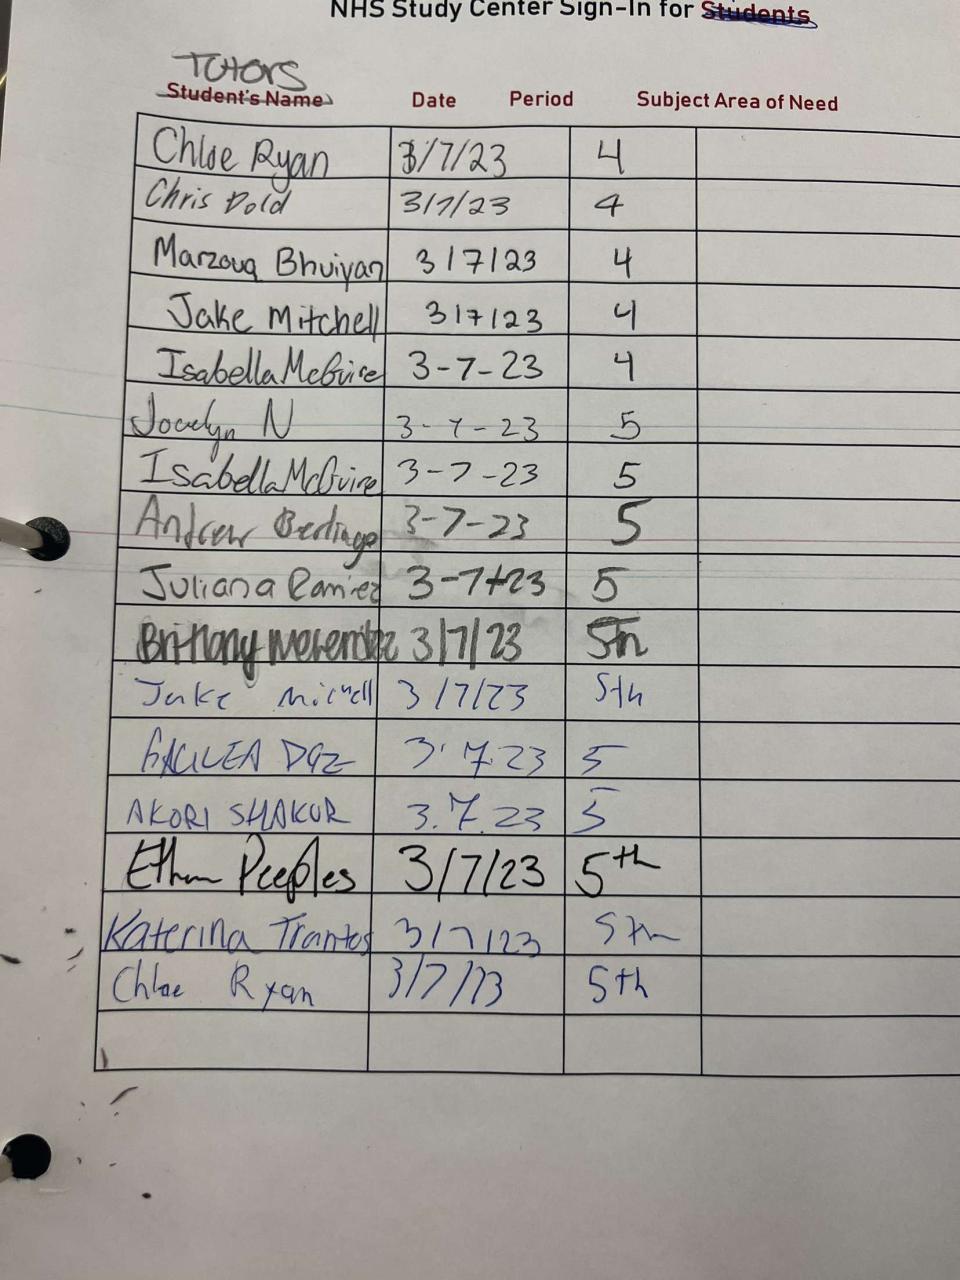 NHS Study Center Sign-In for Students
TUTORS
Student's Name Date Period Subject Area of Need
Chloe Ryan 3/7/23 4
Chris Dold 3/7/23 4
Marzouq Bhuiyan 3/7/23 4
Jake Mitchell 3/7/23 4
Isabella McGuire 3-7-23 4
Jocelyn N 3-7-23 5
Isabella McGuire 3-7-23 5
Andrew 3-7-23 5
Juliana Ramirez 3-7-23 5
Brittany 3/7/23 5th
Jake 3/7/23 5th
3.7.23 5
AKORI SHAKUR 3.7.23 5
Ethan Peeples 3/7/23 5th
Katerina Trantos 3/7/23 5th
Chloe Ryan 3/7/23 5th